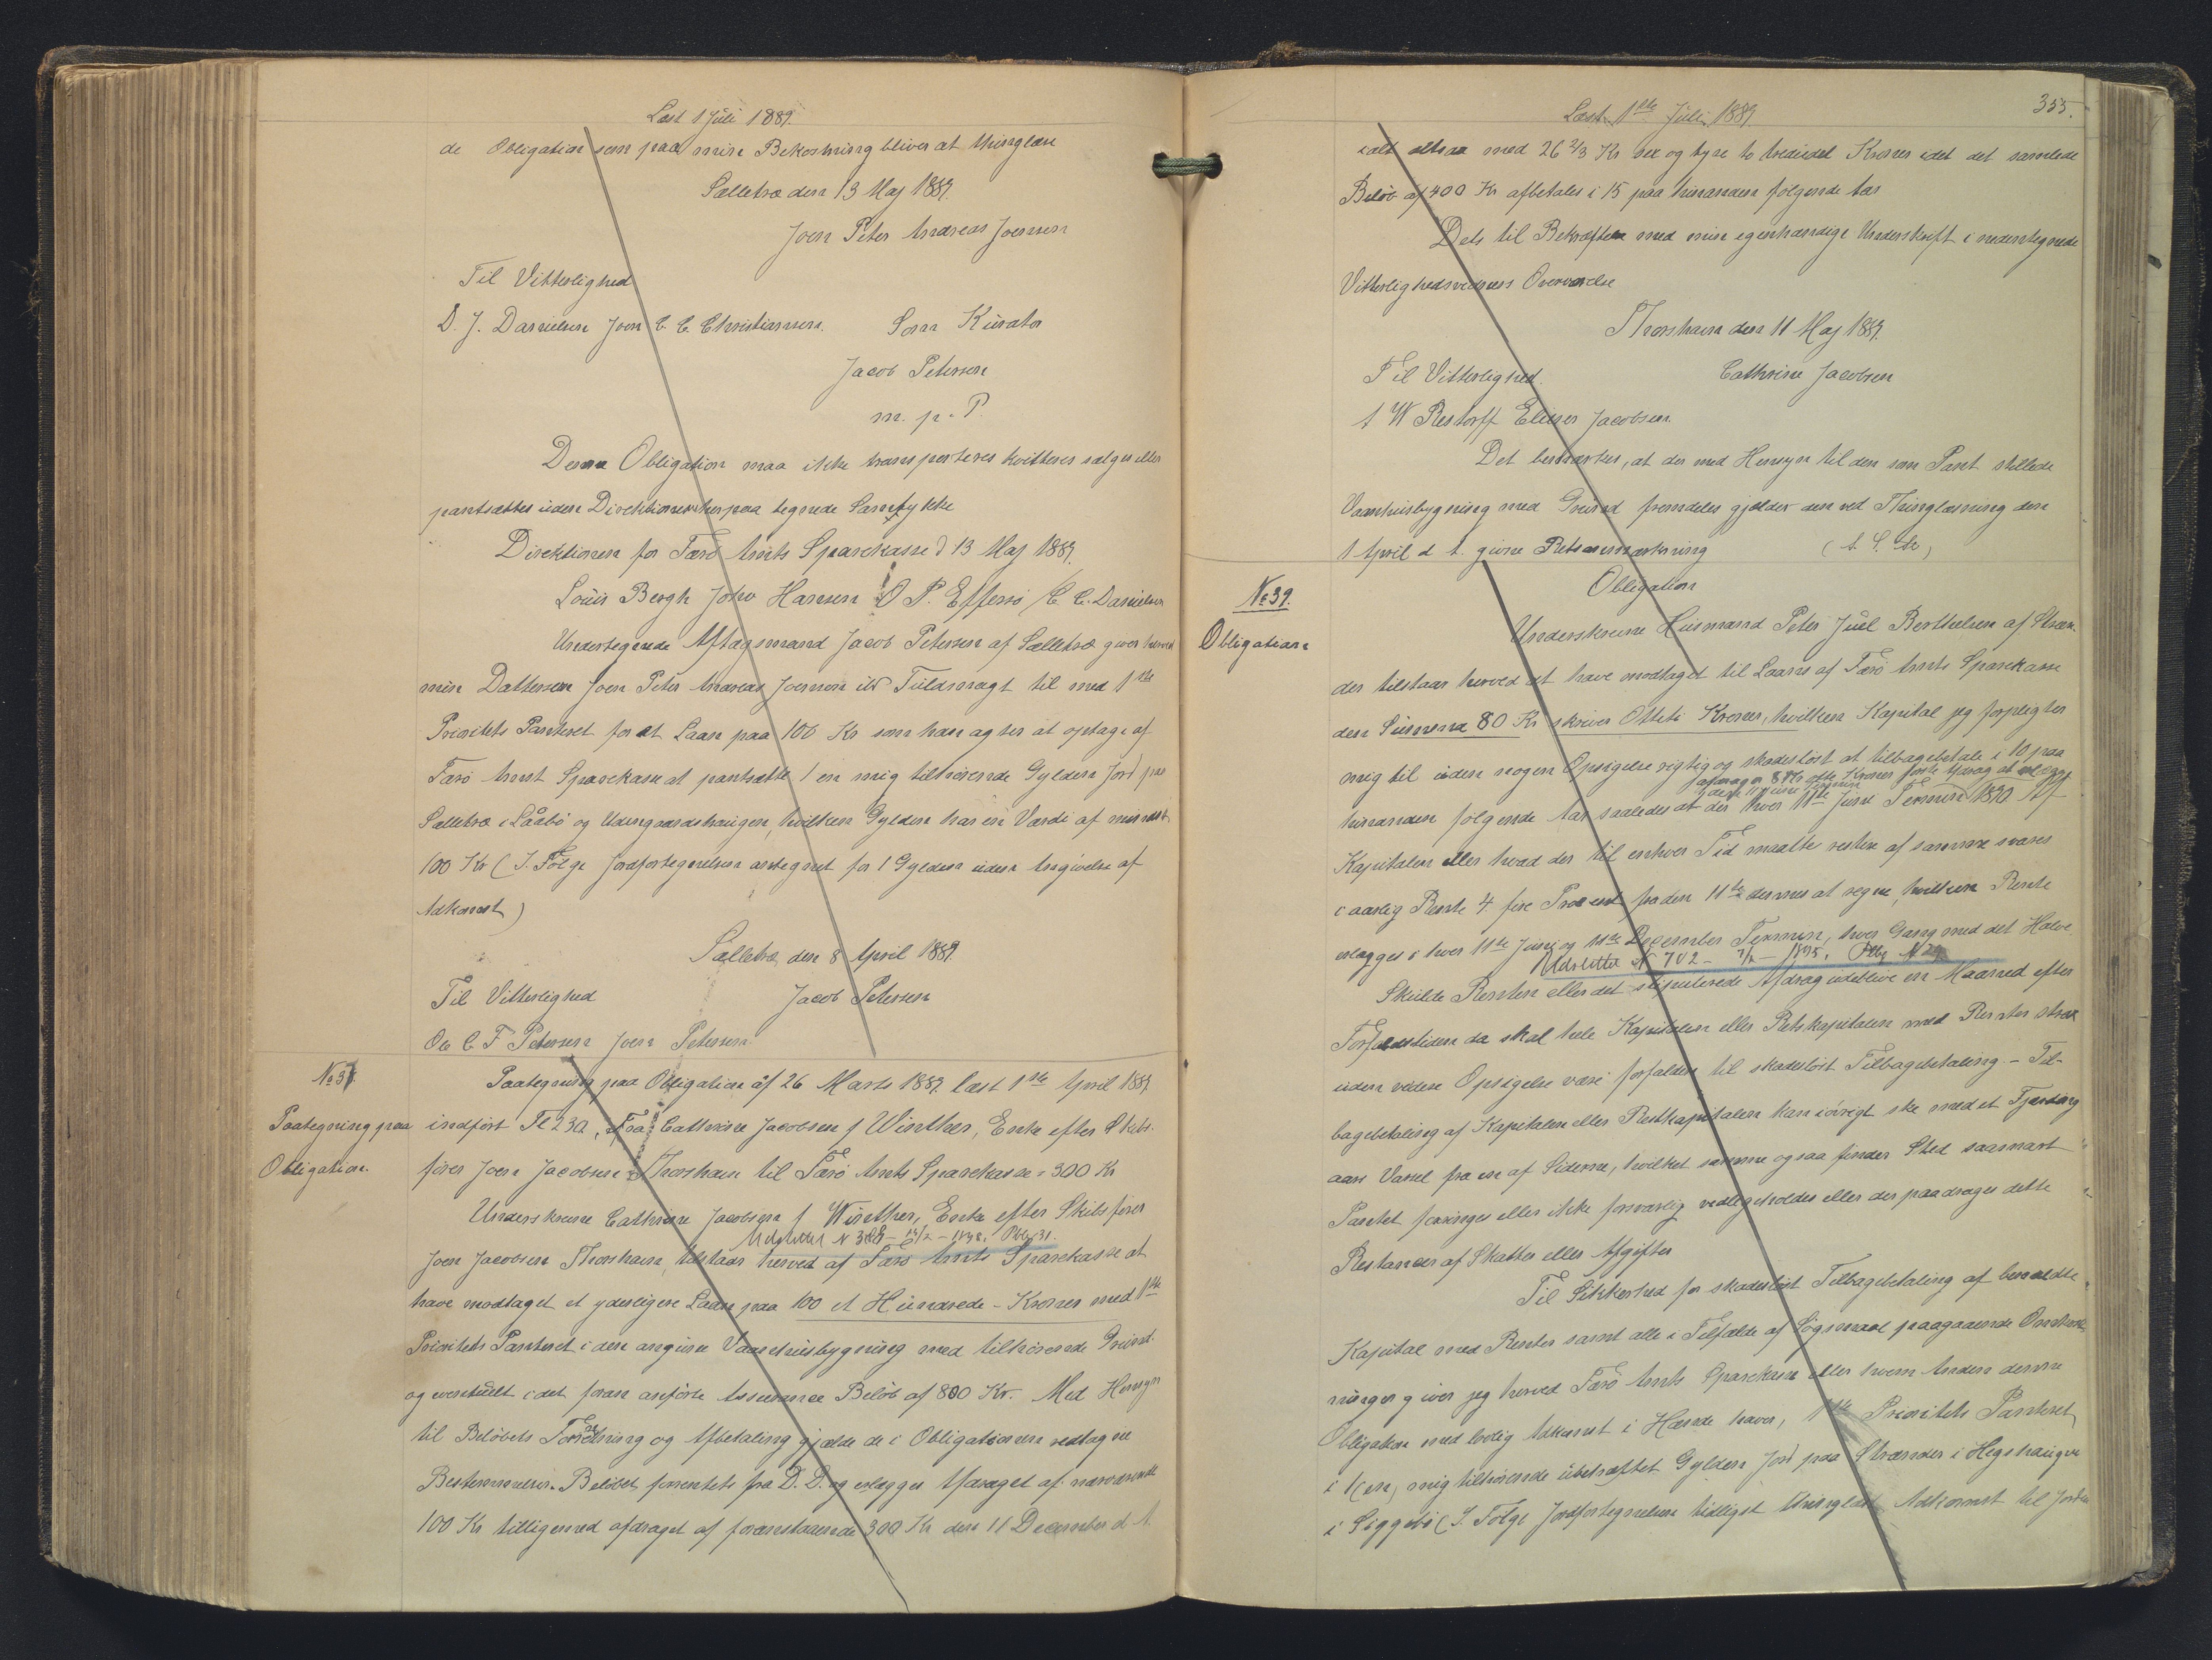 Læst 1 Juli 1889.
de Obligation som paa min Bekostning bliver at thinglæse
Selletræ den 13 Maj 1889.
Joen Peter Andreas Joensen
Til Vitterlighed
D. J. Danielsen Joen C. C. Christiansen. Som Kurator
Jacob Petersen
m. p. P.
Denne Obligation maa ikke transporteres kvitteres sælges eller
pantsættes uden Direktionens herpaa tegnede Samtykke
Direktionen for Færø Amts Sparekasse d 13 Maj 1889.
Louis Bergh John Hansen O P. Effersø / C. C. Danielsen
Undertegnede Aftægsmand Jacob Petersen af Selletræ giver herved
min Dattersøn Joen Peter Andreas Joensen ibd Fuldmagt til med 1ste
Prioritets Panteret for et Laan paa 100 Kr som han agter at optage af
Færø Amt Sparekasse at pantsætte 1 en mig tilhørende Gylden Jord paa
Selletræ i Låabø og Udengaardshaugen, hvilken Gylden har en Værdi af mindst
100 Kr (I. Følge Jordfortegnelsen antegnet for 1 Gylden uden Angivelse af
Adkomst)
Selletræ den 8 April 1889.
Til Vitterlighed Jacob Petersen
Ole C F Petersen Joen Petersen
No 37.
Paategning paa Obligation af 26 Marts 1889 læst 1ste April 1889
Paategning paa
indført Fl 230, Fra Cathrine Jacobsen f Winther, Enke efter Skibs-
Obligation.
fører Joen Jacobsen Thorshavn til Færø Amts Sparekasse = 300 Kr
Underskrevne Cathrine Jacobsen f Winther, Enke efter Skibsfører
Udslettet N 388 - 14/2 - 1938. Pbg 31.
Joen Jacobsen Thorshavn, tilstaar herved af Færø Amts Sparekasse at
have modtaget et yderligere Laan paa 100 et Hundrede - Kroner med 1ste
Prioritets Panteret i den angivne Vaanehusbygning med tilhørende Grund
og eventuelt i det foran anførte Assurance Beløb af 800 Kr. Med Hensyn
til Beløbets Forrentning og Afbetaling gjælde de i Obligationen vedtagne
Bestemmelser. Beløbet forrentes fra D. D. og erlægges Afdraget af nærværende
100 Kr tilligemed afdraget af foranstaaende 300 Kr den 11 December d A.
355.
Læst 1ste Juli 1889
ialt altsaa med 26 2/3 Kr sex og tyve to trediedel Kroner idet det samlede
Beløb af 400 Kr afbetales i 15 paa hinanden følgende Aar
Dets til Bekræftelse med min egenhændige Underskrift i nedentegnede
Vitterlighedsvidners Overværelse
Thorshavn den 11 Maj 1889.
Til Vitterlighed. Cathrine Jacobsen
A W Restorff Elieser Jacobsen.
Det bemærkes, at der med Hensyn til den som Pant stillede
Vaanhusbygning med Grund fremdeles gjælder den ved Thinglæsning den
1 April d A. givne Retsanmærkning
No 39.
Obligation
Obligation
Underskrevne Husmand Peter Juel Berthelsen af Stræn
der tilstaar herved at have modtaget til Laans af Færø Amts Sparekasse
den Summa 80 Kr skriver Otteti Kroner, hvilken Kapital jeg forpligter
mig til uden nogen Opsigelse rigtig og skadesløst at tilbagebetale i 10 paa
afdrages 8 Kr otte Kroner første Afdrag at erlægge
hinanden følgende Aar saaledes at der hver 11te Juni Termin 1890 Af
Kapitalen eller hvad der til enhver Tid maatte restere af samme svares
i aarlig Rente 4. fire Procent fra den 11te dennes at regne, hvilken Rente
erlægges i hver 11te Juni og 11te December Termin, hver Gang med det Halve
Udslettet N 702 - 7/2 - 1895. Pbg N 24
Skulde Renten eller det stipulerede Afdrag udeblive en Maaned efter
Forfaldstiden da skal hele Kapitalen eller Restkapitalen med Renter strax
uden videre Opsigelse være forfalden til skadesløst Tilbagebetaling - Til-
bagebetaling af Kapitalen eller Restkapitalen kan iøvrigt ske med et Fjerding
aars Varsel fra en af Siderne, hvilket samme ogsaa finder Sted saasnart
Pantet forringes eller ikke forsvarlig vedligeholdes eller der paadrages dette
Restancer af Skatter eller Afgifter
Til Sikkerhed for skadesløst Tilbagebetaling af bemeldte
Kapital med Renter samt alle i Tilfælde af Søgsmaal paagaaende Omkost
ninger giver jeg herved Færø Amts Sparekasse eller hvem Anden denne
Obligation med lovlig Adkomst i Hænde haver, 1ste Prioritets Panteret
i 1 (en) mig tilhørende ubehæftet Gylden Jord paa Strænder i Hegshaugve
i Siggebø (I. Følge Jordfortegnelsen tidligst thinglæst Adkomst til Jorden